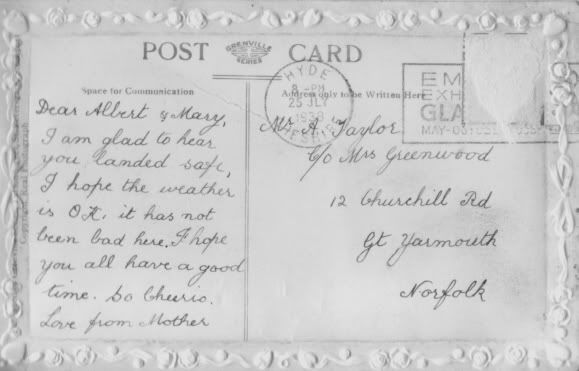 POST CARD
GRENVILLE
SERIES
HYDE
8 - PM
25 JLY
1938
CHESHIRE
EM
EXH
GLA
MAY-OCT
Space for Communication
Address only to be Written Here
Dear Albert & Mary,
I am glad to hear
you landed safe,
I hope the weather
is O.K. it has not
been bad here. I hope
you all have a good
time. So Cheerio.
Love from Mother
Mr A. Taylor
C/o Mrs Greenwood
12 Churchill Rd
Gt Yarmouth
Norfolk